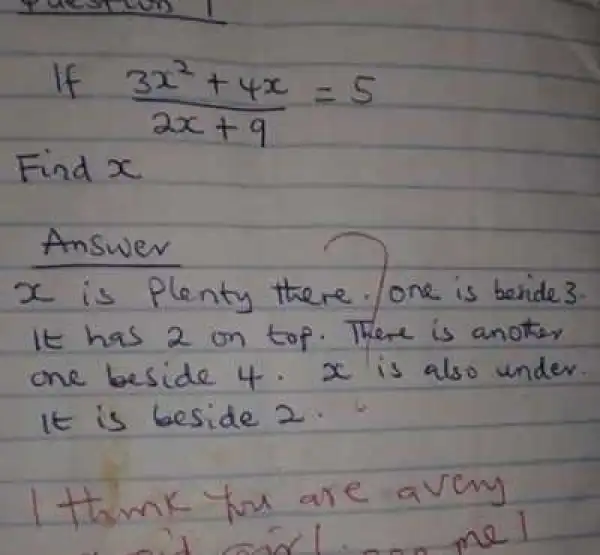 Question 1
If 3x² + 4x = 5
2x + 9
Find x
Answer
x is plenty there. one is beside 3.
It has 2 on top. There is another
one beside 4. x is also under.
It is beside 2.
I think you are avery
girl. me!